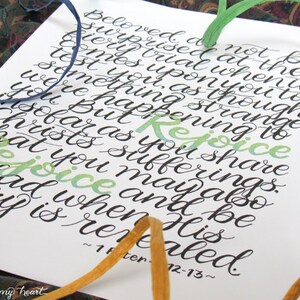 Beloved, not be
surprised at the
trial when it
comes upon
you, as though
something strange
were happening to
you. But Rejoice
insofar as you share
Christ's sufferings.
that you may also
Rejoice and be
glad when His
is revealed.
~ 1 Peter 12-13 ~
my heart